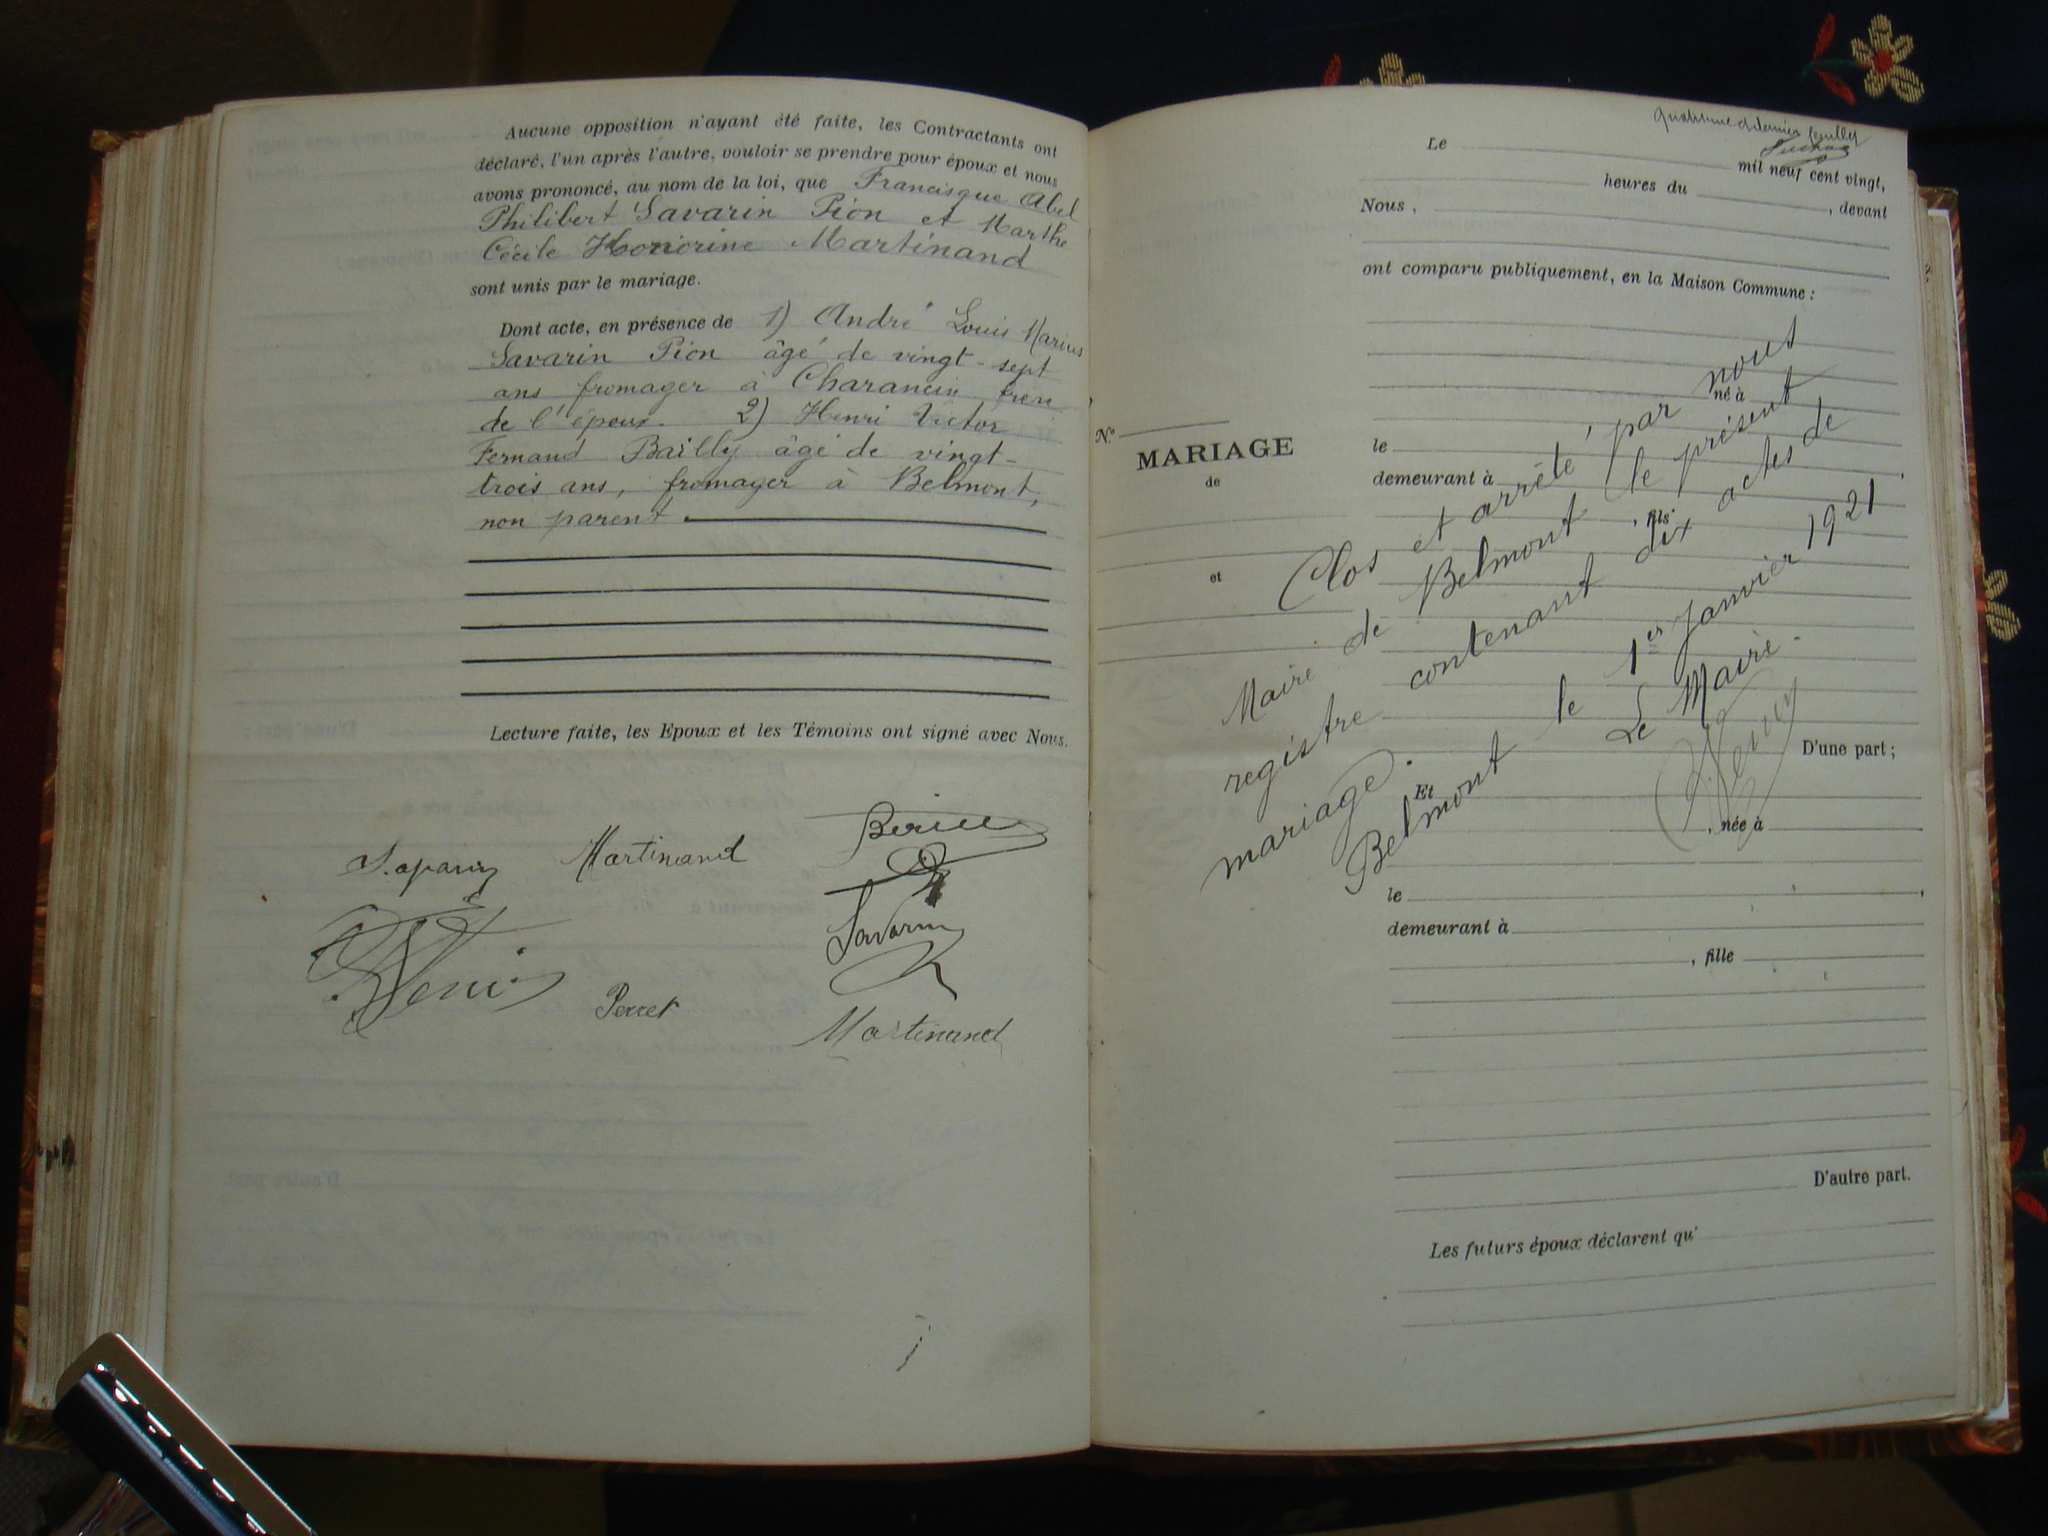 Aucune opposition n'ayant été faite, les Contractants ont
déclaré, l'un après l'autre, vouloir se prendre pour époux et nous
avons prononcé, au nom de la loi, que Francisque Abel
Philibert Savarin Pion et Marthe
Cécile Honorine Martinand
sont unis par le mariage.
Dont acte, en présence de 1) André Louis Marius
Savarin Pion âgé de vingt-sept
ans fromager à Charancin frère
de l'époux. 2) Henri Victor
Fernand Bailly âgé de vingt-
trois ans, fromager à Belmont,
non parent.
Lecture faite, les Epoux et les Témoins ont signé avec Nous.
Martinand
Savarin
Perret
Martinand
Quatrième et dernier feuillet
Le mil neuf cent vingt,
heures du , devant
Nous,
ont comparu publiquement, en la Maison Commune :
né à
N°
MARIAGE
de
et
le
demeurant à
, fils
Clos et arrêté par nous
Maire de Belmont le présent
registre contenant dix actes de
mariage.
Belmont le 1er Janvier 1921
Le Maire.
D'une part ;
Et
, née à
le ,
demeurant à
, fille
D'autre part.
Les futurs époux déclarent qu'